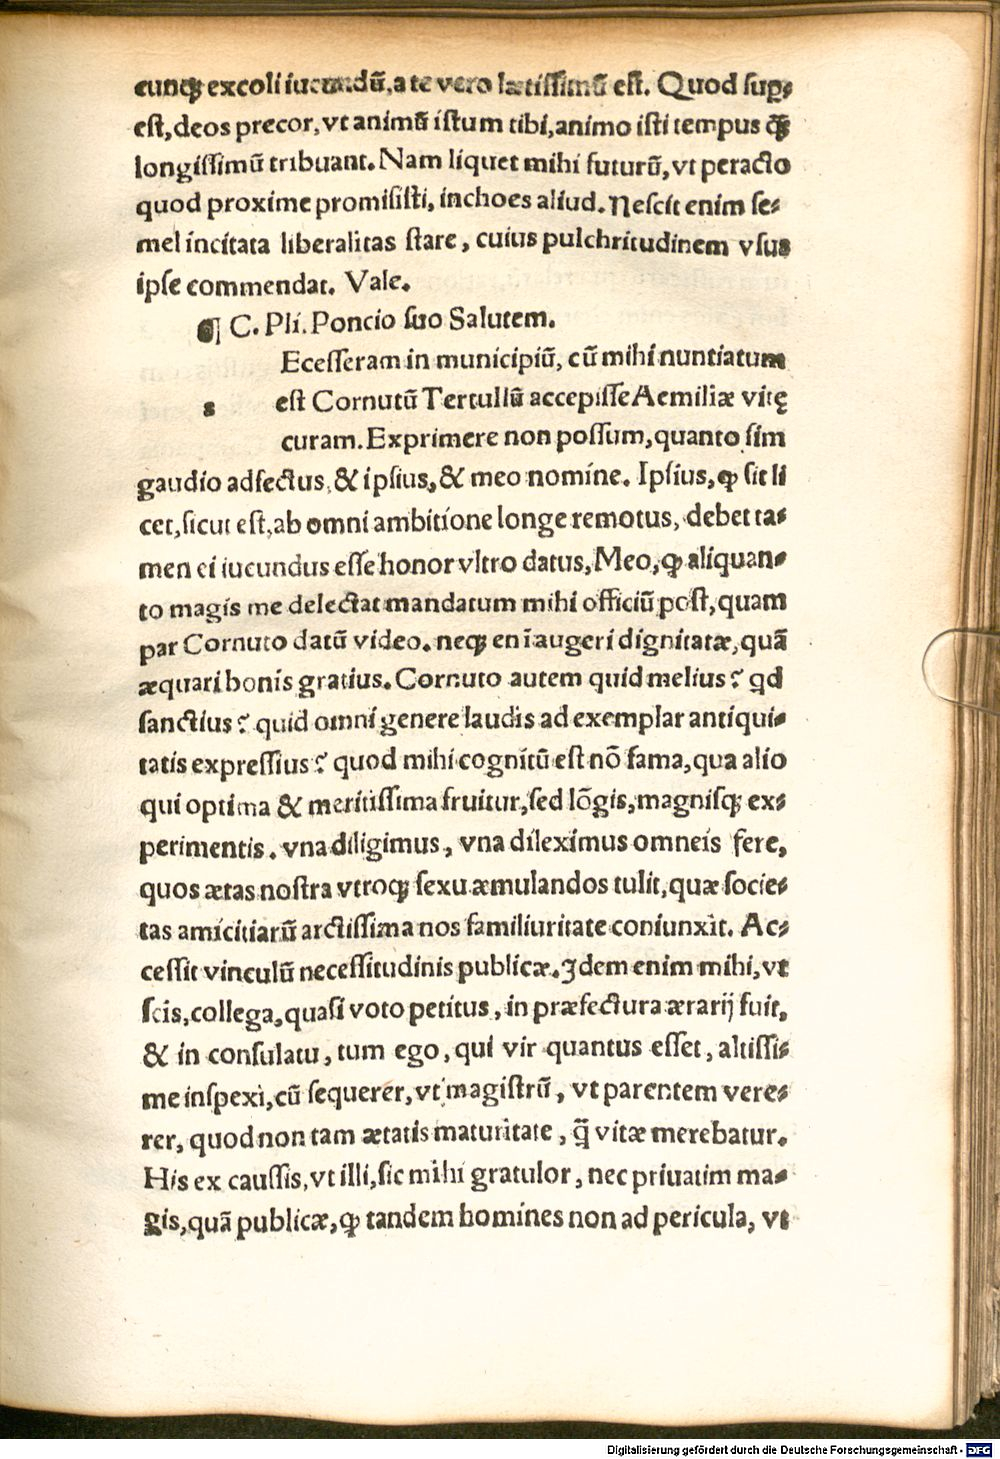 cunqꝫ excoli iucundū, a te vero lætissimū est. Quod sup⸗
est, deos precor, vt animū istum tibi, animo isti tempus q̄ꝫ
longissimū tribuant. Nam liquet mihi futurū, vt peracto
quod proxime promisisti, inchoes aliud. Nescit enim se⸗
mel incitata liberalitas stare, cuius pulchritudinem vsus
ipse commendat. Vale.
¶ C. Pli. Poncio suo Salutem.
Ecesseram in municipiū, cū mihi nuntiatum
s est Cornutū Tertullū accepisse Aemiliæ vitę
curam. Exprimere non possum, quanto sim
gaudio adfectus, & ipsius, & meo nomine. Ipsius, ꝙ sit li
cet, sicut est, ab omni ambitione longe remotus, debet ta⸗
men ei iucundus esse honor vltro datus, Meo, ꝙ aliquan⸗
to magis me delectat mandatum mihi officiū post, quam
par Cornuto datū video. neqꝫ enī augeri dignitatæ, quā
æquari bonis gratius. Cornuto autem quid melius? qd
sanctius? quid omni genere laudis ad exemplar antiqui⸗
tatis expressius? quod mihi cognitū est nō fama, qua alio
qui optima & meritissima fruitur, sed lōgis, magnisqꝫ ex⸗
perimentis. vna diligimus, vna dileximus omneis fere,
quos ætas nostra vtroqꝫ sexu æmulandos tulit, quæ socie⸗
tas amicitiarū arctissima nos familiuritate coniunxit. Ac⸗
cessit vinculū necessitudinis publicæ. Idem enim mihi, vt
scis, collega, quasi voto petitus, in præfectura ærarij fuit,
& in consulatu, tum ego, qui vir quantus esset, altissi⸗
me inspexi, cū sequerer, vt magistrū, vt parentem vere⸗
rer, quod non tam ætatis maturitate, q̄ vitæ merebatur.
His ex caussis, vt illi, sic mihi gratulor, nec priuatim ma⸗
gis, quā publicæ, ꝙ tandem homines non ad pericula, vt
Digitalisierung gefördert durch die Deutsche Forschungsgemeinschaft - DFG